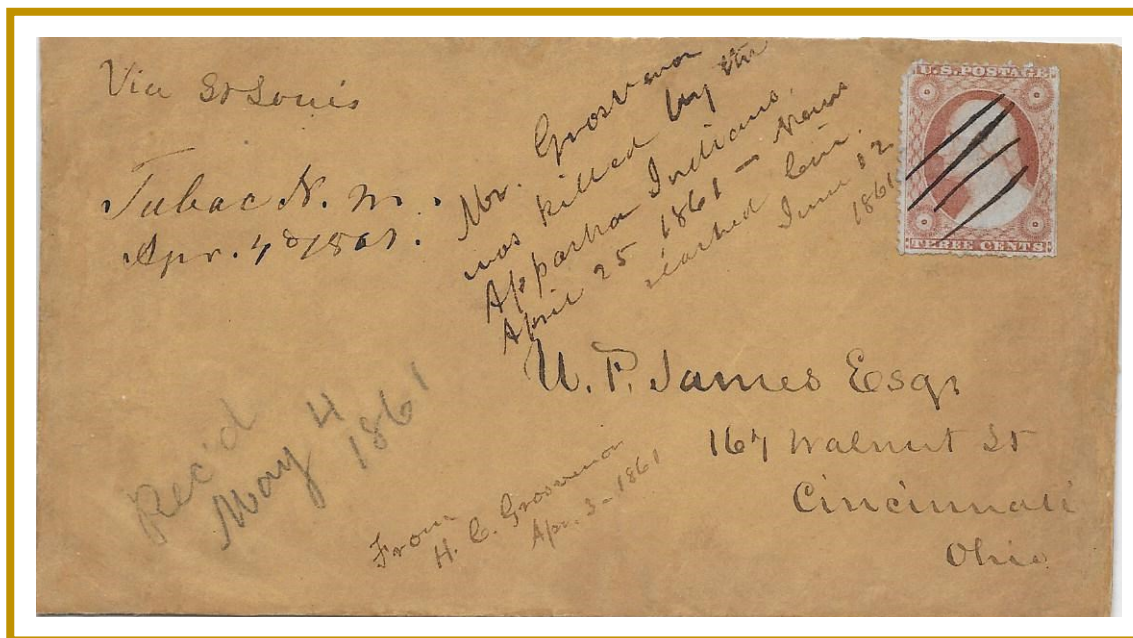 Via St Louis
Tubac N. M.
Apr. 4th 1861.
Mr. Grosvenor
was killed by the
Apparho Indians.
April 25 1861 — News
reached Cin.
June 12
1861
U.S. POSTAGE
THREE CENTS
U. P. James Esqr
167 Walnut St
Cincinnati
Ohio
Rec'd
May 4
1861
From
H. C. Grosvenor
Apr. 3 - 1861